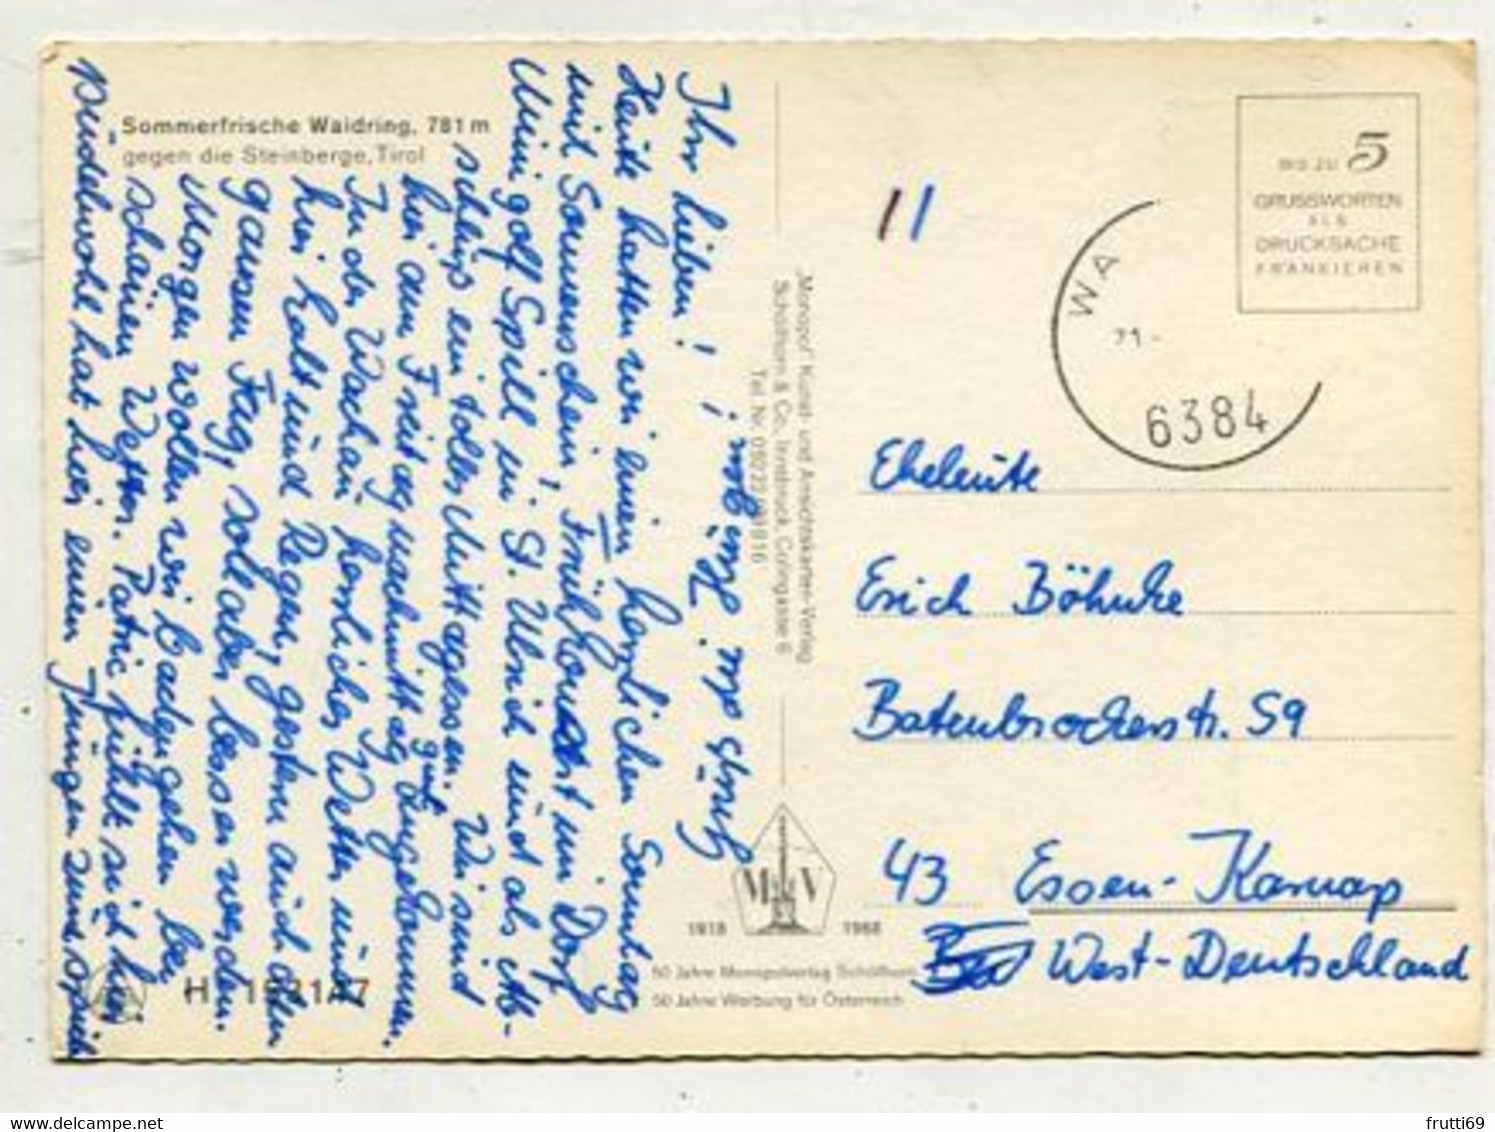 Sommerfrische Waidring, 781 m
gegen die Steinberge, Tirol
Ihr Lieben!
Heute hatten wir einen herrlichen Sonntag
mit Sonnenschein, Frühkonzert im Dorf
Minigolf Spill in St. Ulrich und als Ab-
schluß ein tolles Mittagessen. Wir sind
hier am Freitagnachmittag gut angekommen.
In der Wachau herrliches Wetter und
hier kalt und Regen, gestern auch den
ganzen Tag, soll aber besser werden.
Morgen wollen wir baden gehen bei
schönen Wetter. Patric fühlt sich hier
pudelwohl hat hier einen Jungen zum
"Monopol" Kunst- und Ansichtskarten-Verlag
Schöllhorn & Co., Innsbruck, Colingasse 6
Tel. Nr. 05222/
M V
1918 1968
50 Jahre Monopolverlag Schöllhorn
50 Jahre Werbung für Österreich
H
11
BIS ZU 5
GRUSSWORTEN
ALS
DRUCKSACHE
FRANKIEREN
WA
21.
6384
Eheleute
Erich Böhnke
Batenbrockerstr. 59
43 Essen-Karnap
West-Deutschland
frutti69